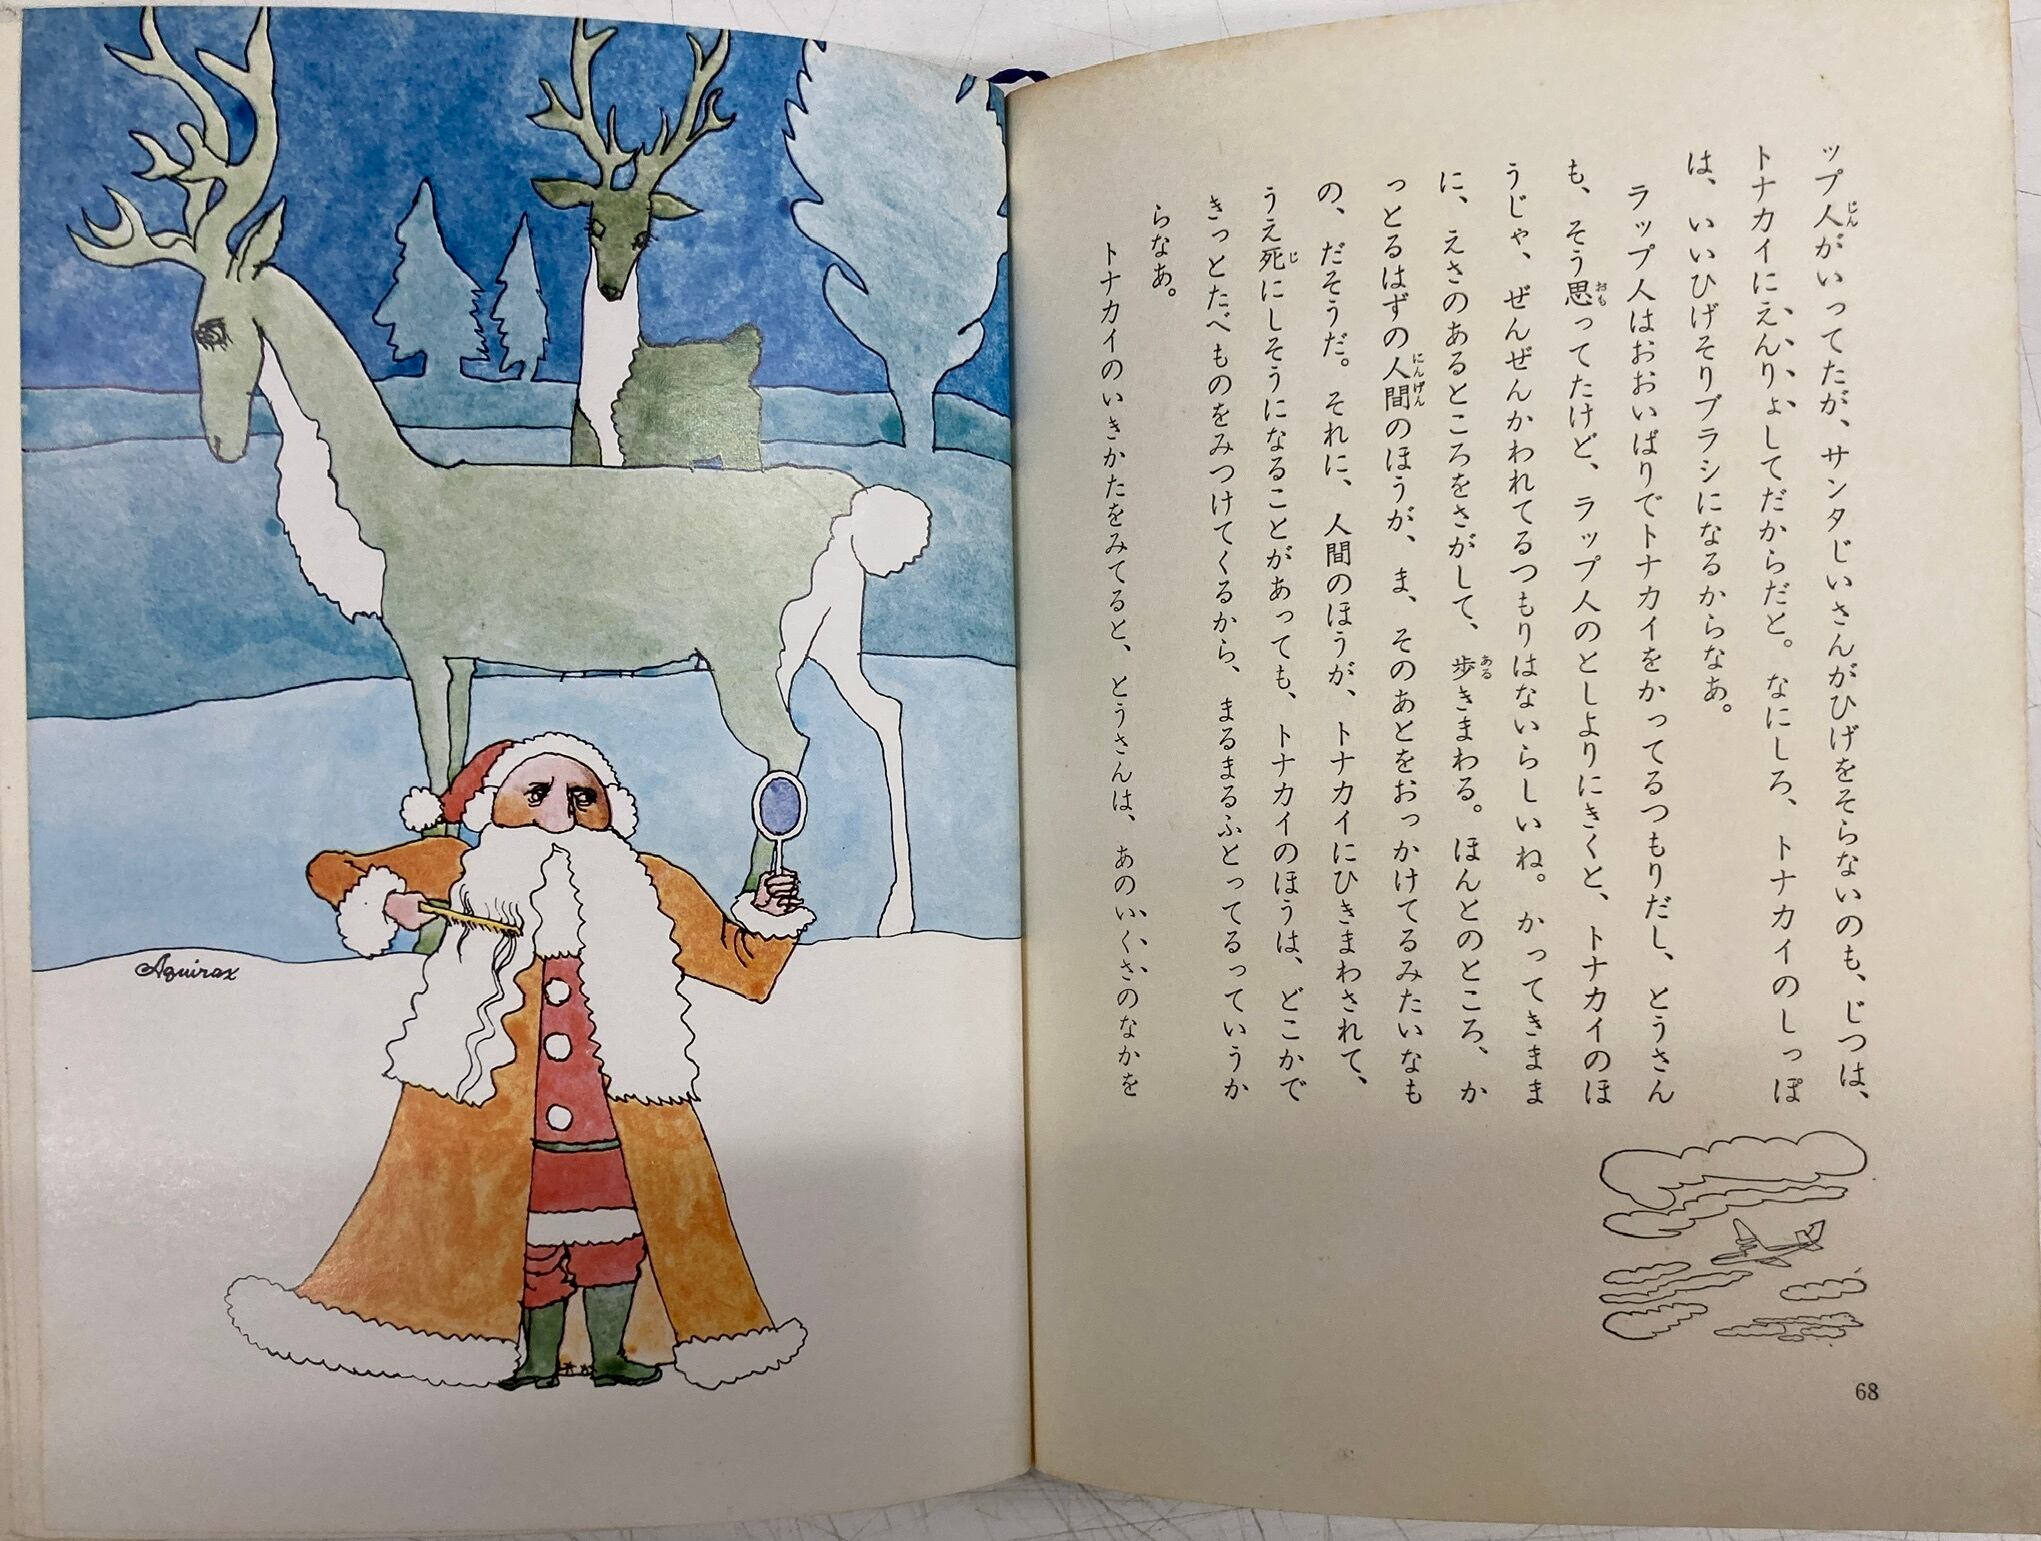 ップ人がいってたが、サンタじいさんがひげをそらないのも、じつは、
トナカイにえんりょしてだからだと。なにしろ、トナカイのしっぽ
は、いいひげそりブラシになるからなあ。
ラップ人はおおいばりでトナカイをかってるつもりだし、とうさん
も、そう思ってたけど、ラップ人のとしよりにきくと、トナカイのほ
うじゃ、ぜんぜんかわれてるつもりはないらしいね。かってきまま
に、えさのあるところをさがして、歩きまわる。ほんとのところ、か
っとるはずの人間のほうが、ま、そのあとをおっかけてるみたいなも
の、だそうだ。それに、人間のほうが、トナカイにひきまわされて、
うえ死にしそうになることがあっても、トナカイのほうは、どこかで
きっとたべものをみつけてくるから、まるまるふとってるっていうか
らなあ。
トナカイのいきかたをみてると、とうさんは、あのいくさのなかを
68
Aquirax